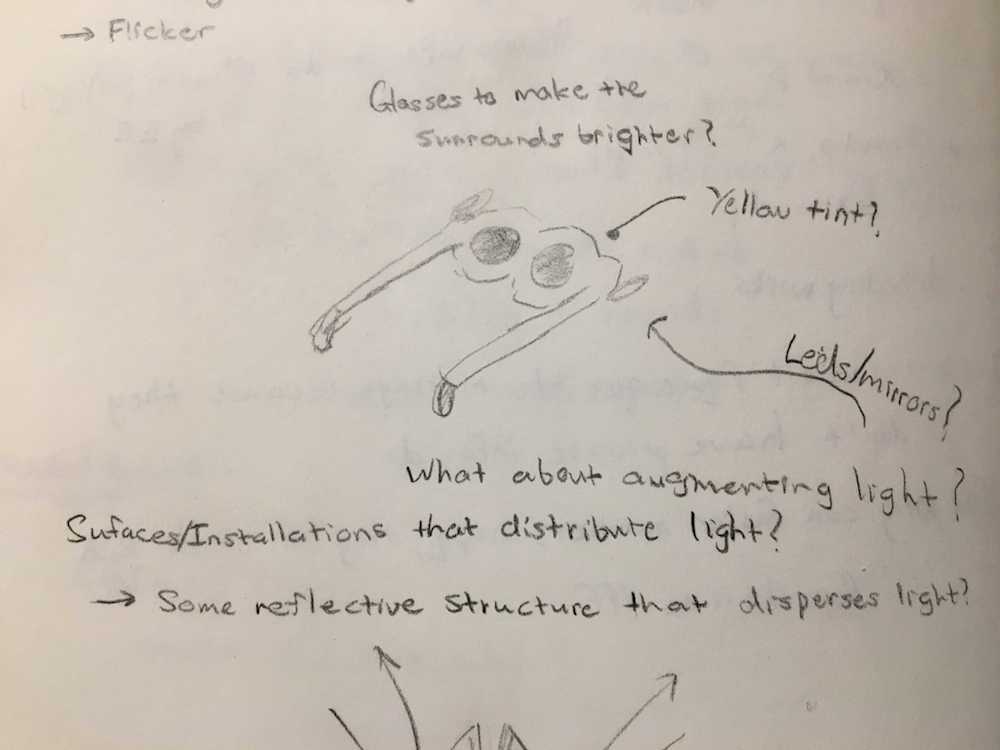 → Flicker
Glasses to make the
surrounds brighter?
Yellow tint?
Leds/mirrors?
What about augmenting light?
Sufaces/Installations that distribute light?
→ Some reflective structure that disperses light?